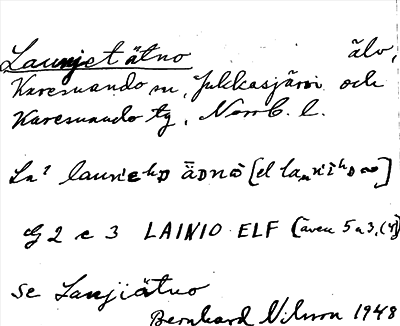 Launjetätno älv,
Karesuando sn, Jukkasjärvi och
Karesuando tg, Norrb. l.
Ln¹ launeʰᴅ äᴅnȯ [el
G 2 e 3 LAINIO ELF (även 5 a 3, (4)]
se Lanjiätno
Bernhard Nilsson 1948